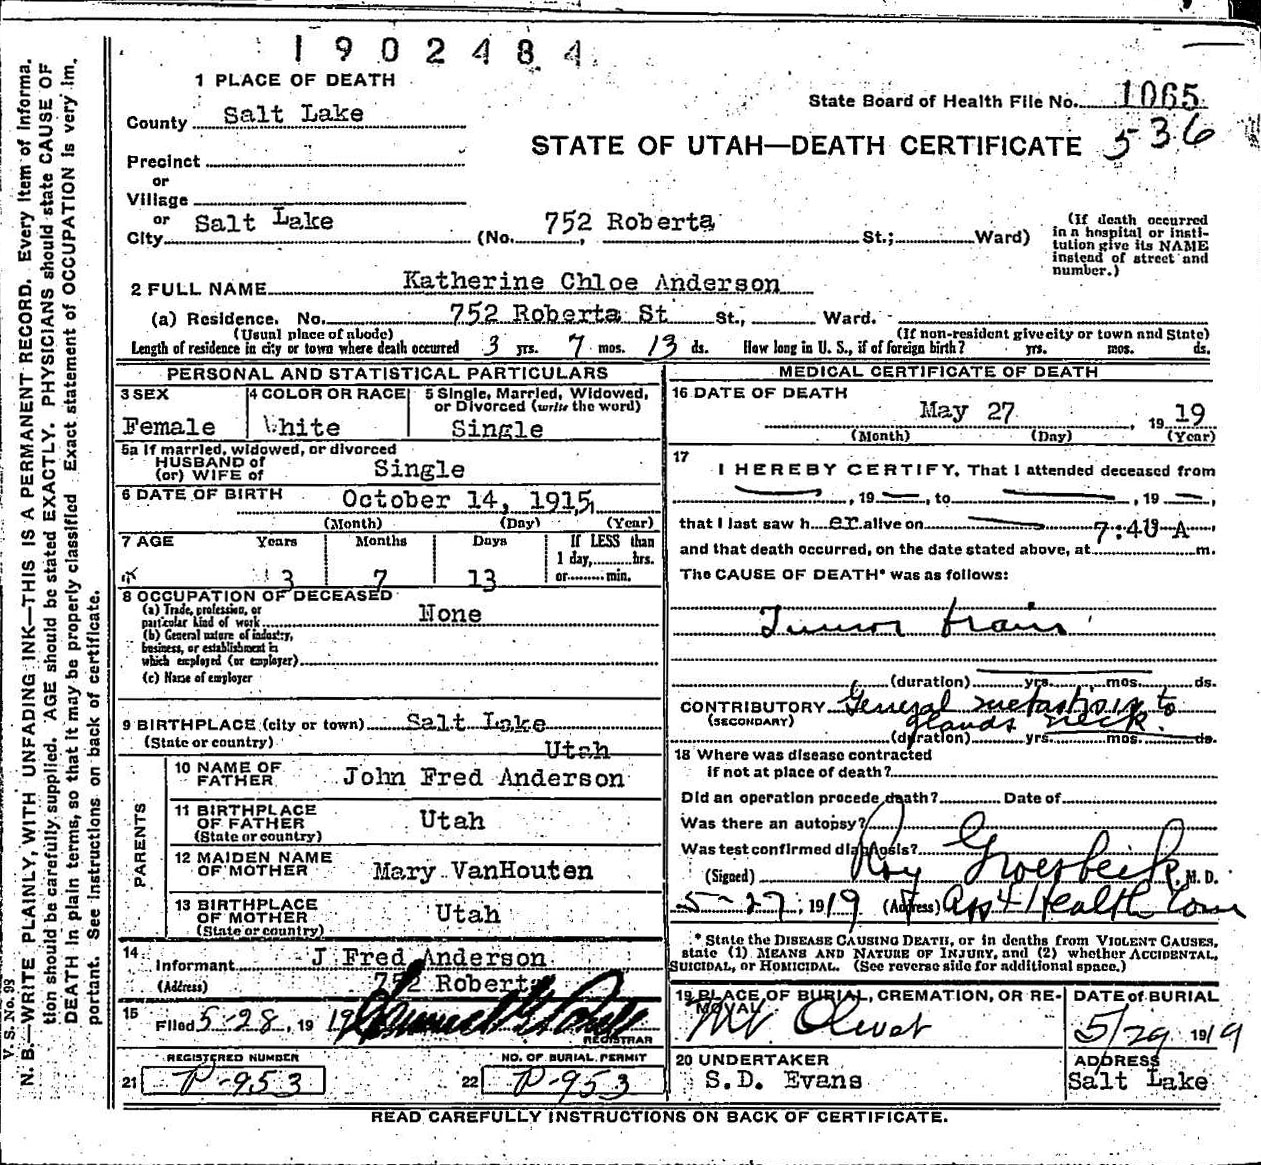 1902484
1 PLACE OF DEATH
State Board of Health File No. 1065
County Salt Lake
536
STATE OF UTAH—DEATH CERTIFICATE
Precinct
or
Village
or
City Salt Lake (No. 752 Roberta St.; Ward)
(If death occurred
in a hospital or insti-
tution give its NAME
instead of street and
number.)
2 FULL NAME Katherine Chloe Anderson
(a) Residence. No. 752 Roberta St St., Ward.
(Usual place of abode) (If non-resident give city or town and State)
Length of residence in city or town where death occurred 3 yrs. 7 mos. 13 ds. How long in U. S., if of foreign birth? yrs. mos. ds.
PERSONAL AND STATISTICAL PARTICULARS
3 SEX
Female
4 COLOR OR RACE
White
5 Single, Married, Widowed,
or Divorced (write the word)
Single
5a If married, widowed, or divorced
HUSBAND of
(or) WIFE of Single
6 DATE OF BIRTH October 14, 1915
(Month) (Day) (Year)
7 AGE Years Months Days If LESS than
1 day,........hrs.
or........min.
3 7 13
8 OCCUPATION OF DECEASED
(a) Trade, profession, or
particular kind of work None
(b) General nature of industry,
business, or establishment in
which employed (or employer)
(c) Name of employer
9 BIRTHPLACE (city or town) Salt Lake
(State or country) Utah
PARENTS
10 NAME OF
FATHER John Fred Anderson
11 BIRTHPLACE
OF FATHER Utah
(State or country)
12 MAIDEN NAME
OF MOTHER Mary VanHouten
13 BIRTHPLACE
OF MOTHER Utah
(State or country)
14
Informant J Fred Anderson
(Address) 752 Roberta
15
Filed 5-28, 1919
REGISTRAR
REGISTERED NUMBER
21 P-953
NO. OF BURIAL PERMIT
22 P-953
MEDICAL CERTIFICATE OF DEATH
16 DATE OF DEATH
May 27 1919
(Month) (Day) (Year)
17
I HEREBY CERTIFY, That I attended deceased from
, 19 , to , 19 ,
that I last saw h er alive on
and that death occurred, on the date stated above, at 7:40 A m.
The CAUSE OF DEATH* was as follows:
Tumor brain
(duration) yrs. mos. ds.
CONTRIBUTORY General metastasis to
(SECONDARY) glands neck.
(duration) yrs. mos. ds.
18 Where was disease contracted
if not at place of death?
Did an operation procede death? Date of
Was there an autopsy?
Was test confirmed diagnosis?
(Signed) Roy Groesbeck M. D.
5-27, 1919 (Address) Asst Health Com
* State the DISEASE CAUSING DEATH, or in deaths from VIOLENT CAUSES,
state (1) MEANS AND NATURE OF INJURY, and (2) whether ACCIDENTAL,
SUICIDAL, or HOMICIDAL. (See reverse side for additional space.)
19 PLACE OF BURIAL, CREMATION, OR RE-
MOVAL
Mt Olivet
DATE of BURIAL
5/29 1919
20 UNDERTAKER
S.D. Evans
ADDRESS
Salt Lake
READ CAREFULLY INSTRUCTIONS ON BACK OF CERTIFICATE.
V. S. No. 93
N. B.—WRITE PLAINLY, WITH UNFADING INK—THIS IS A PERMANENT RECORD. Every item of informa-
tion should be carefully supplied. AGE should be stated EXACTLY. PHYSICIANS should state CAUSE OF
DEATH in plain terms, so that it may be properly classified. Exact statement of OCCUPATION is very im-
portant. See instructions on back of certificate.